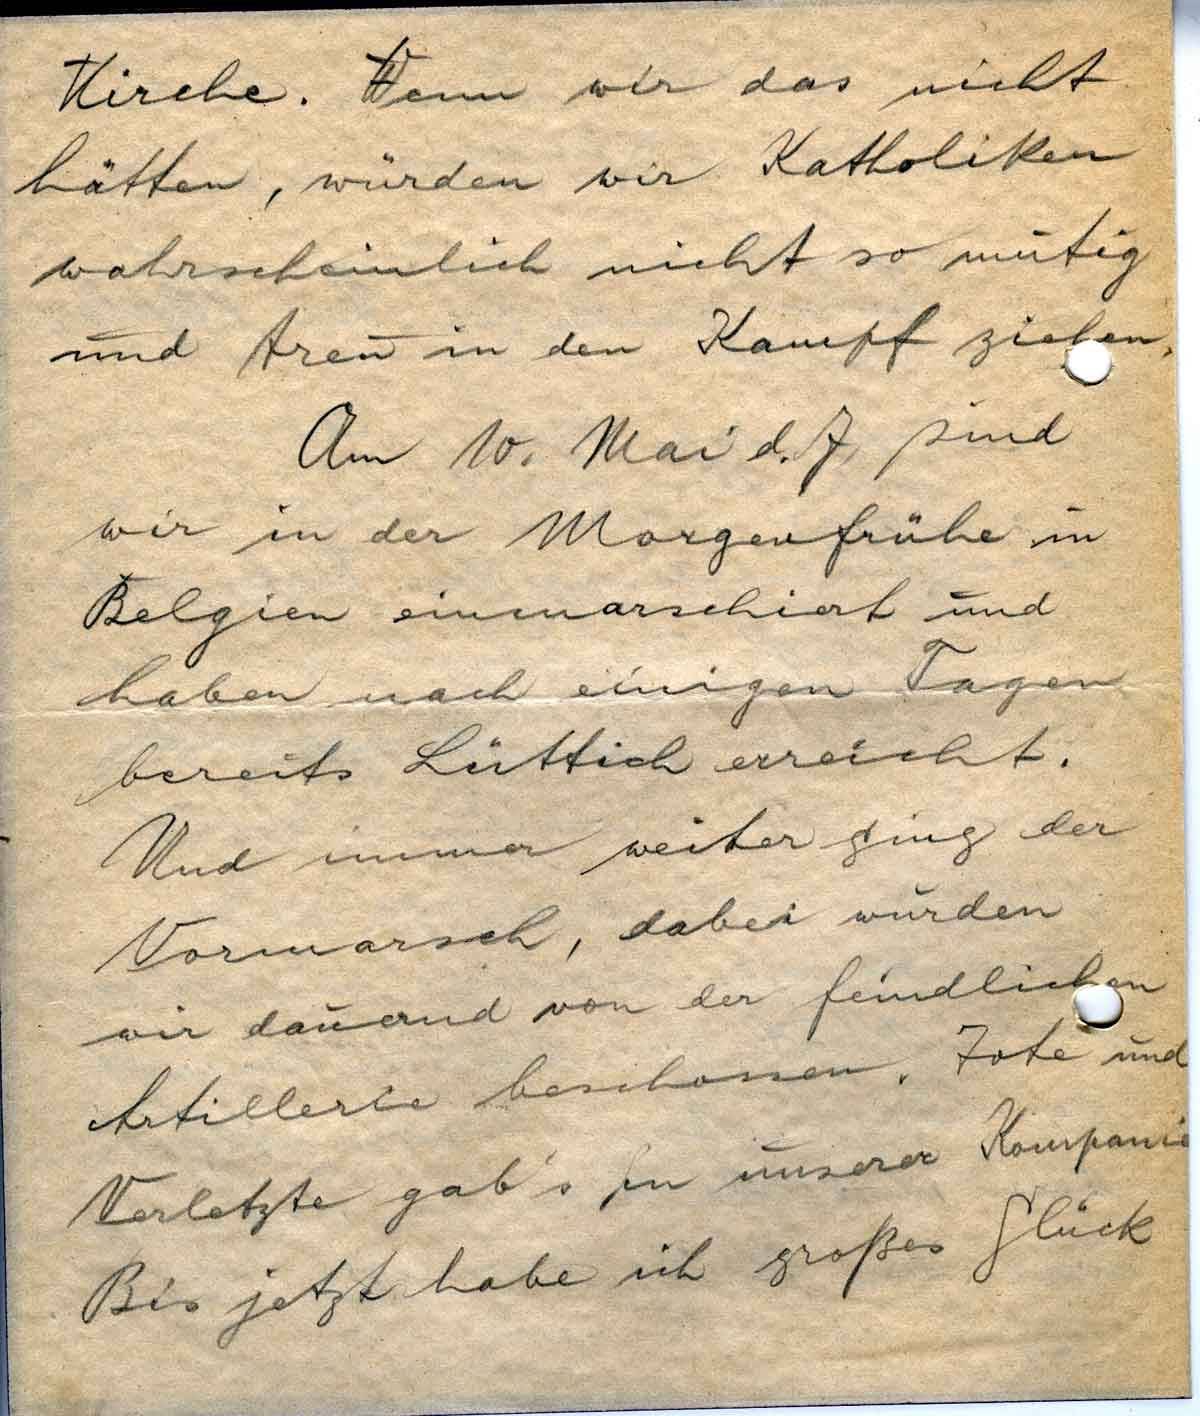 Kirche. Wenn wir das nicht
hätten, würden wir Katholiken
wahrscheinlich nicht so mutig
und treu in den Kampf ziehen.
Am 10. Mai d. J. sind
wir in der Morgenfrühe in
Belgien einmarschiert und
haben nach einigen Tagen
bereits Lüttich erreicht.
Und immer weiter ging der
Vormarsch, dabei wurden
wir dauernd von der feindlichen
Artillerie beschossen. Tote und
Verletzte gab's in unserer Kompanie
Bis jetzt habe ich großes Glück